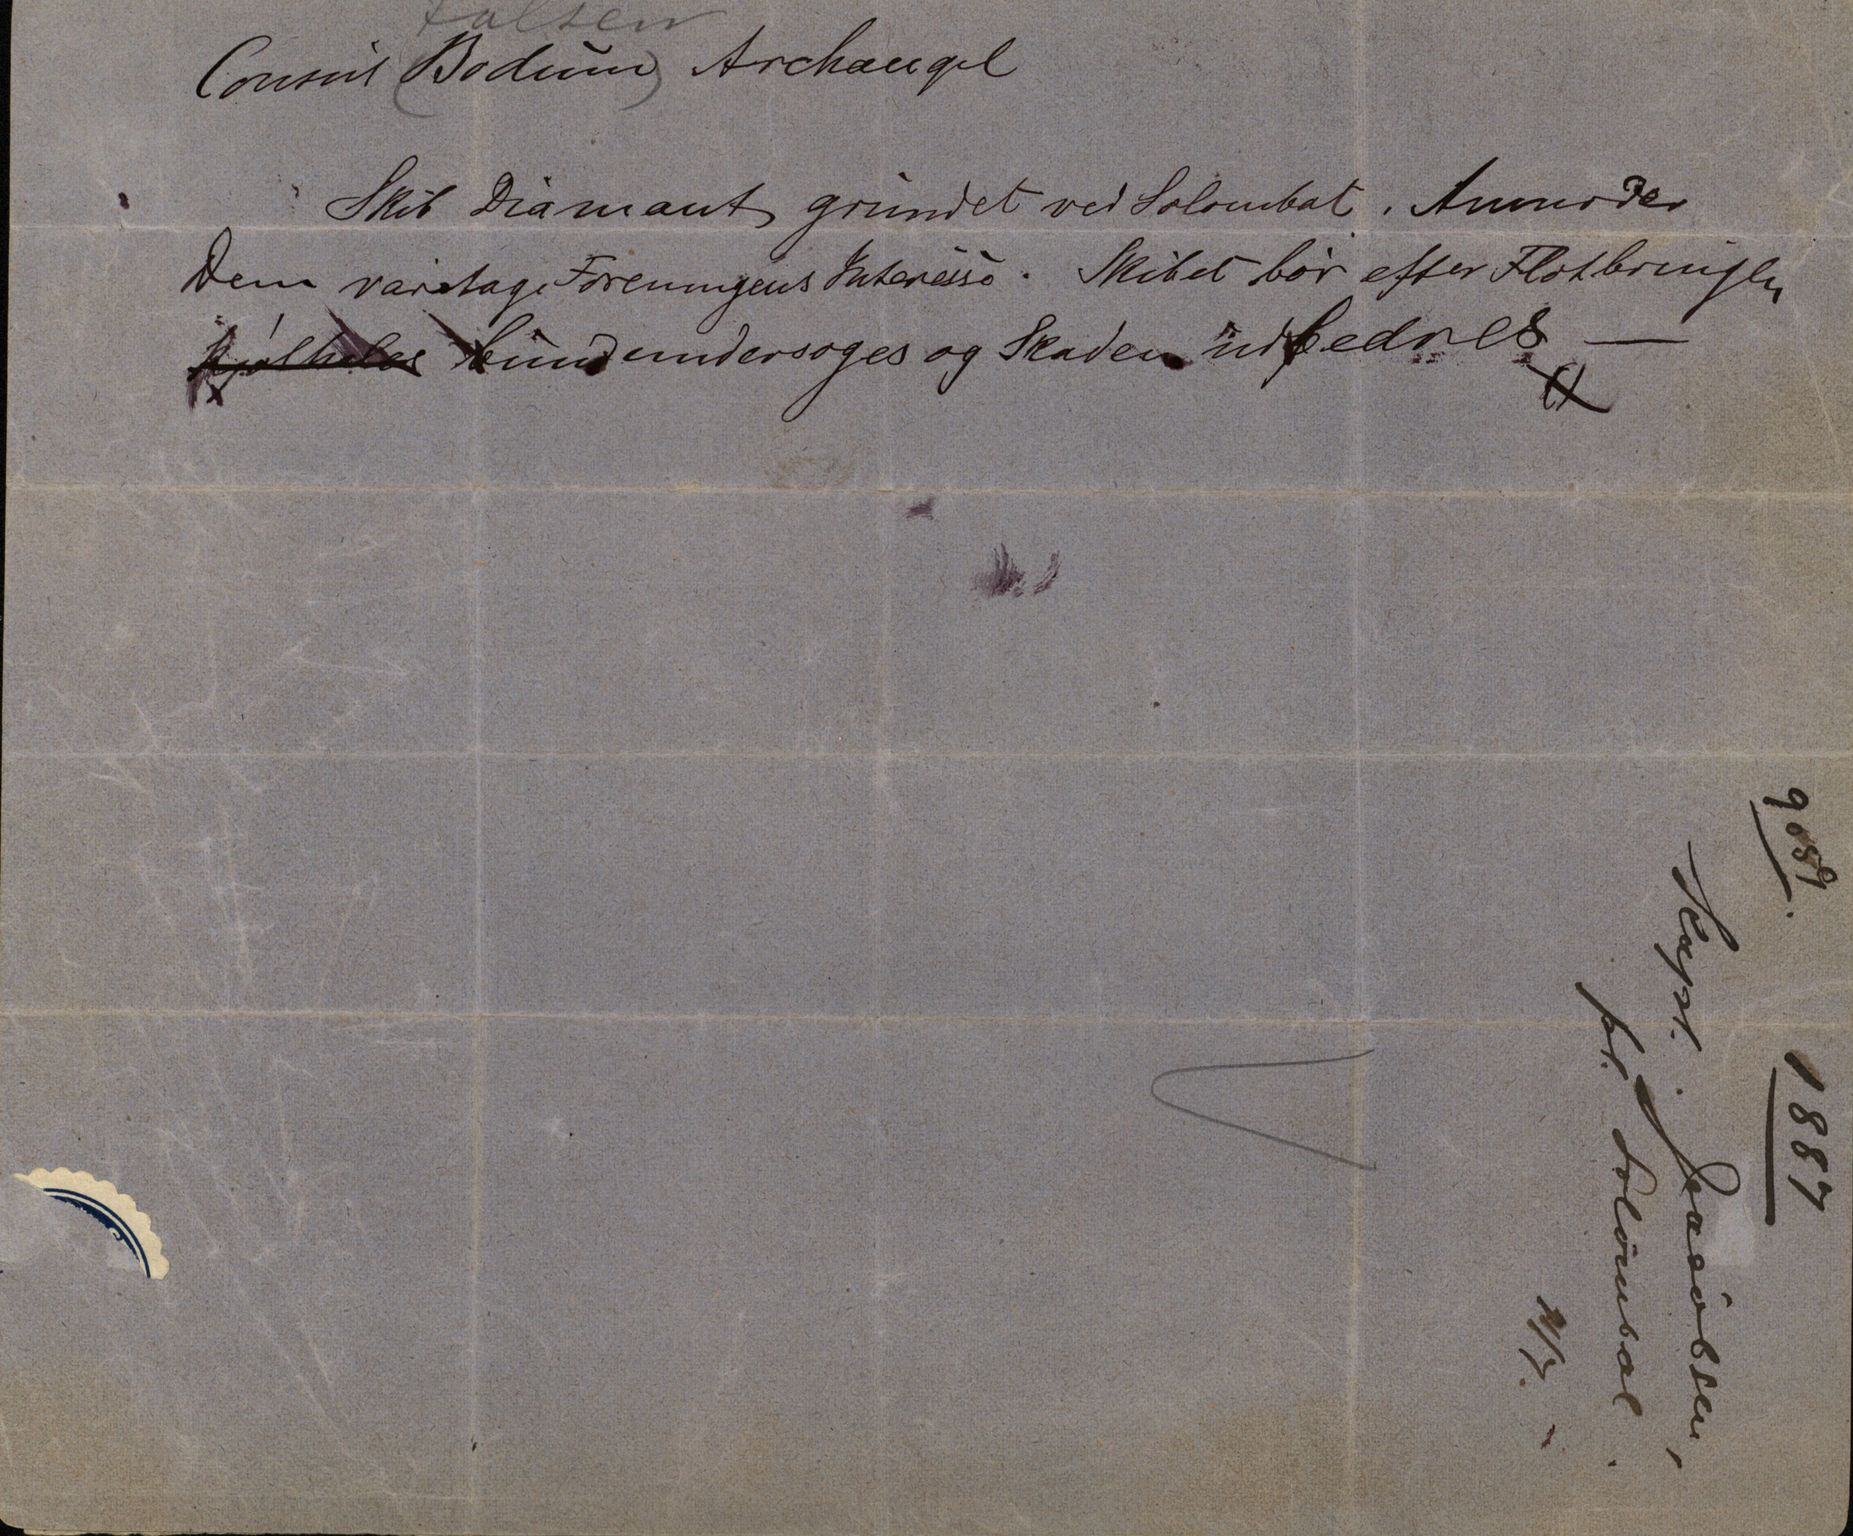 Falsen
Consul (Bodum) Archangel
Skib Diamant grundet ved Solombal. Anmoder
Dem varetage Foreningens Interesse. Skibet bør efter Flotbringlse
kjølhales bundundersøges og Skaden udbedres —
9089.
1887
Kapt. Jacobsen,
pr. Solombal.